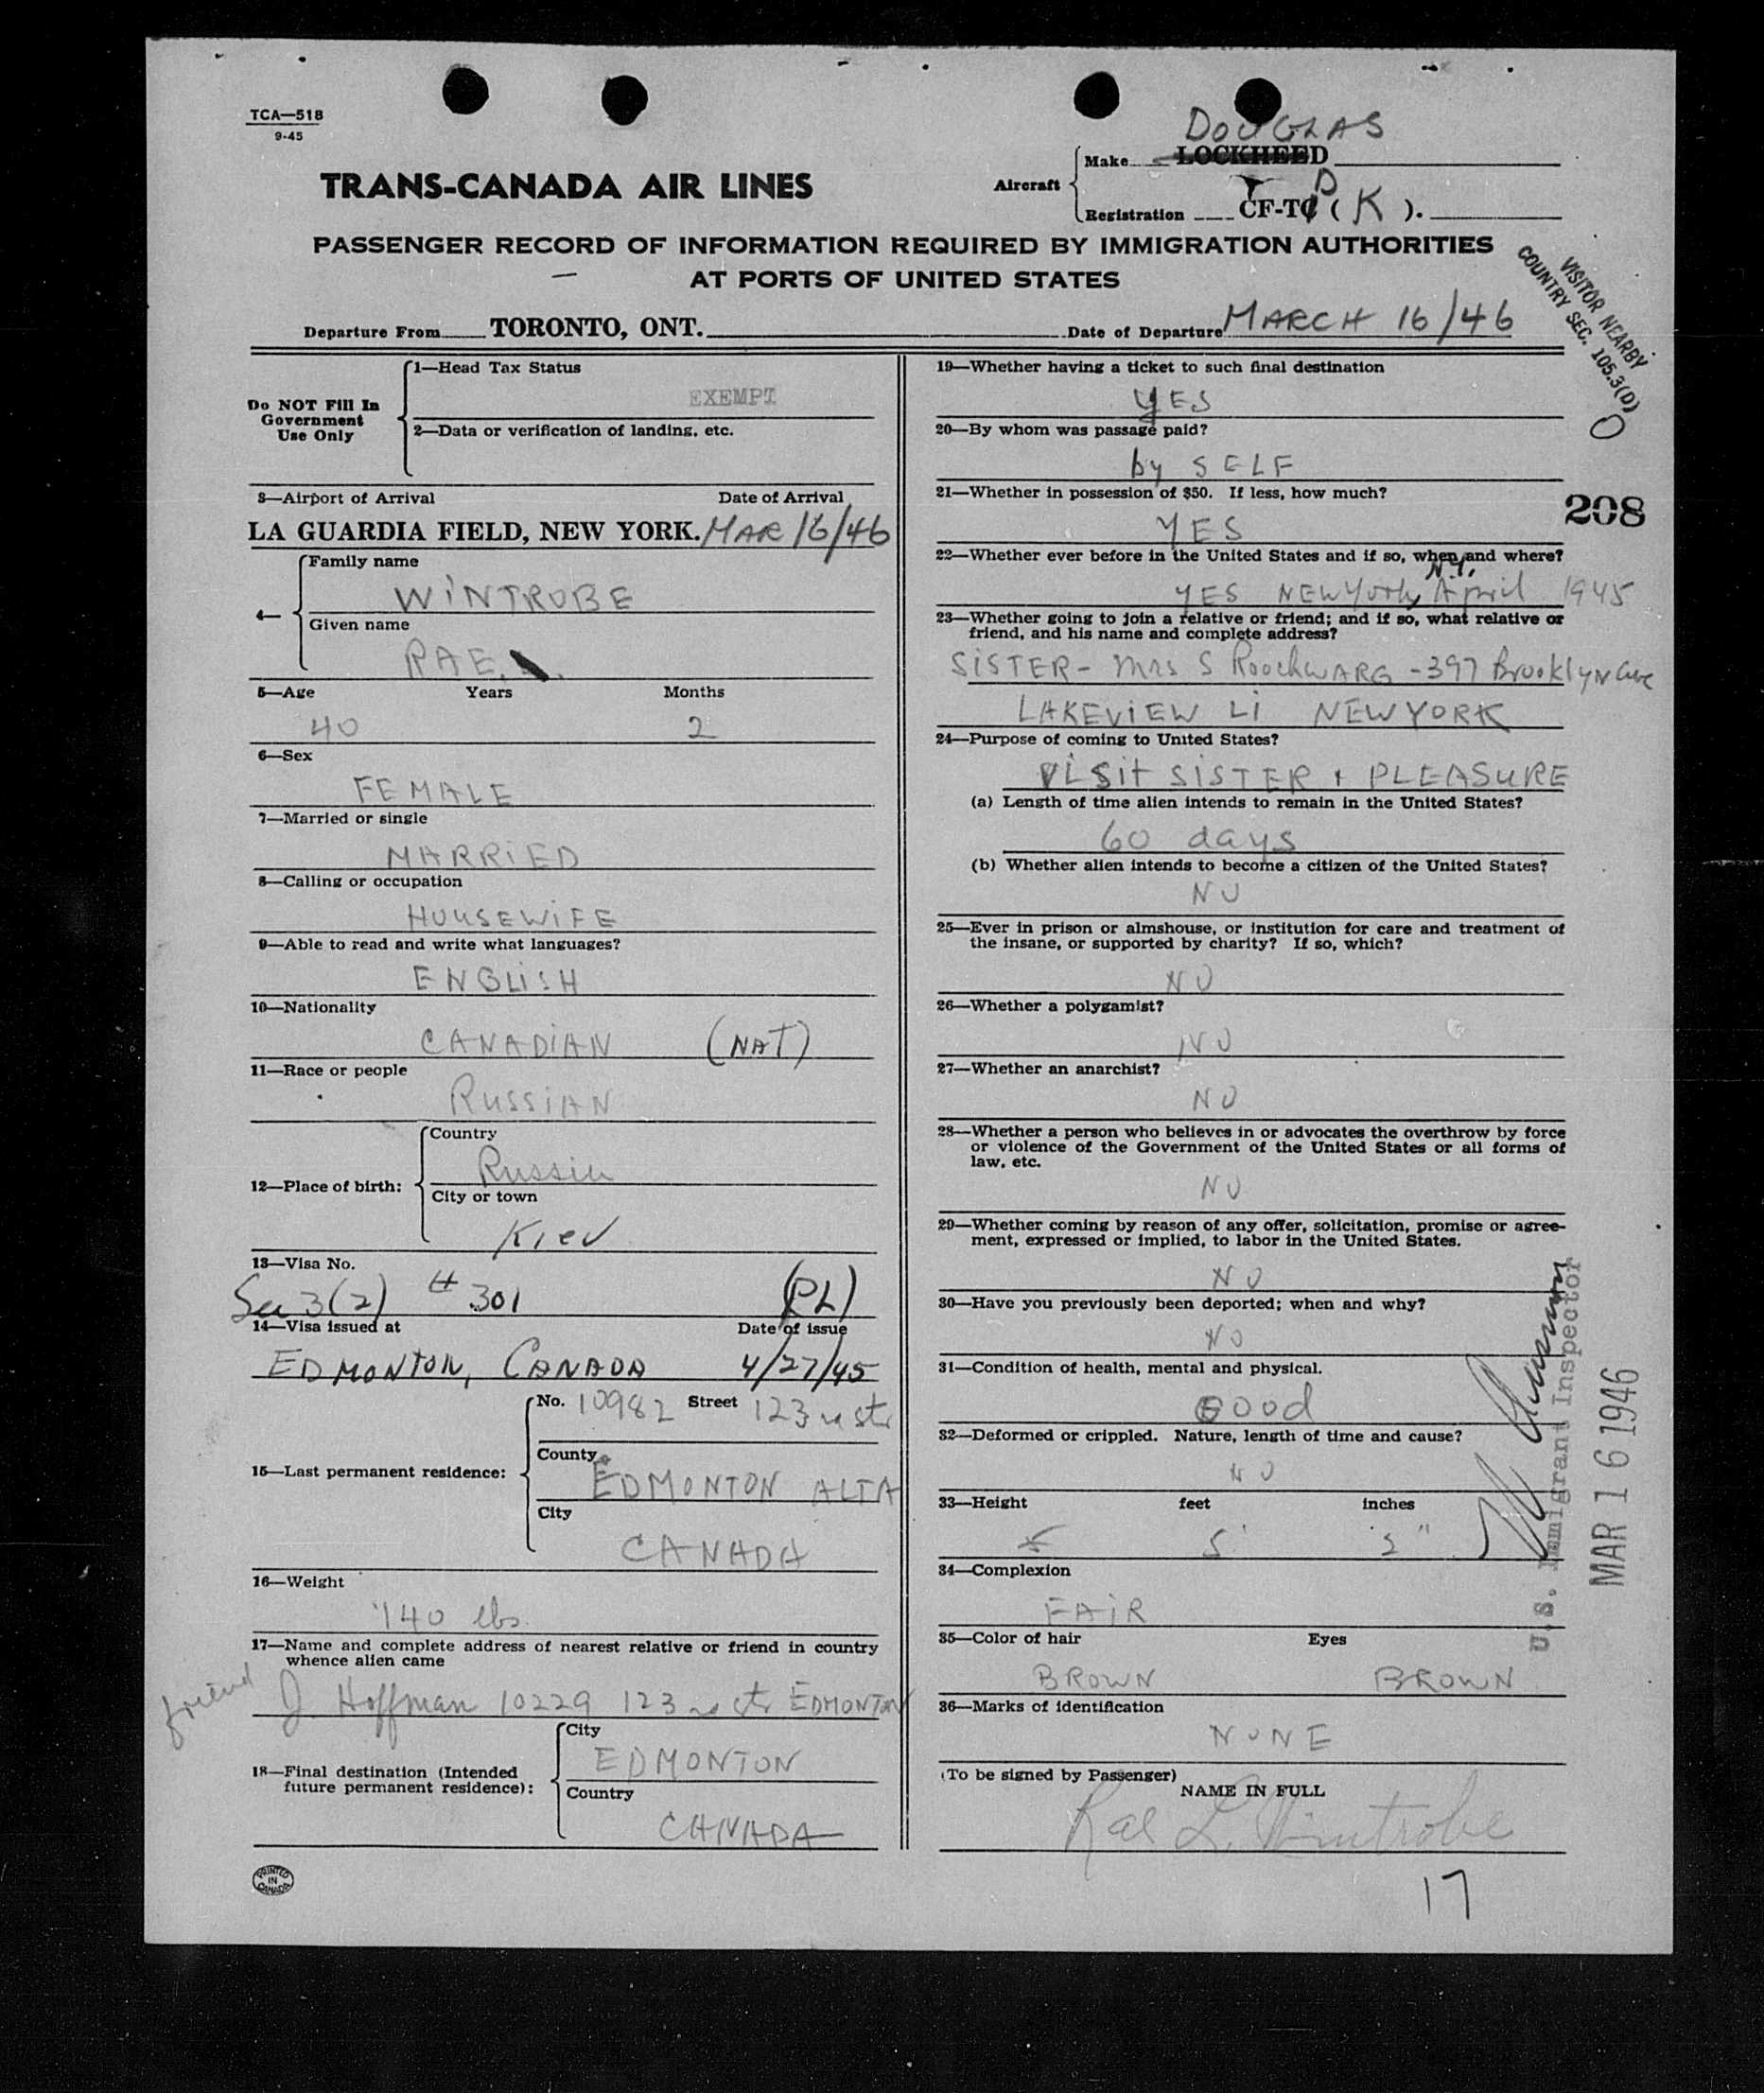 TCA—518
9-45
DOUGLAS
Aircraft Make LOCKHEED
Registration CF-T ( K ).
TRANS-CANADA AIR LINES
PASSENGER RECORD OF INFORMATION REQUIRED BY IMMIGRATION AUTHORITIES
AT PORTS OF UNITED STATES
VISITOR NEARBY
COUNTRY SEC. 105.3(D)
Departure From TORONTO, ONT. Date of Departure MARCH 16/46
Do NOT Fill In
Government
Use Only
1—Head Tax Status
EXEMPT
2—Data or verification of landing, etc.
3—Airport of Arrival Date of Arrival
LA GUARDIA FIELD, NEW YORK. MAR 16/46
4— Family name
WINTROBE
Given name
RAE
5—Age Years Months
40 2
6—Sex
FEMALE
7—Married or single
MARRIED
8—Calling or occupation
HOUSEWIFE
9—Able to read and write what languages?
ENGLISH
10—Nationality
CANADIAN (NAT)
11—Race or people
RUSSIAN
12—Place of birth: Country
Russia
City or town
Kiev
13—Visa No.
Sec 3(2) # 301 (PL)
14—Visa issued at Date of issue
EDMONTON, CANADA 4/27/45
15—Last permanent residence: No. 10982 Street 123 st
County
EDMONTON ALTA
City
CANADA
16—Weight
140 lbs.
17—Name and complete address of nearest relative or friend in country
whence alien came
friend J. Hoffman 10229 123 st EDMONTON
18—Final destination (Intended
future permanent residence):
City
EDMONTON
Country
CANADA
PRINTED
IN
CANADA
19—Whether having a ticket to such final destination
YES
20—By whom was passage paid?
by SELF
21—Whether in possession of $50. If less, how much?
YES
208
22—Whether ever before in the United States and if so, when and where?
N.Y.
YES NEW York, April 1945
23—Whether going to join a relative or friend; and if so, what relative or
friend, and his name and complete address?
SISTER - Mrs S RoochWARG - 397 Brooklyn Ave
LAKEVIEW LI NEW YORK
24—Purpose of coming to United States?
Visit SISTER + PLEASURE
(a) Length of time alien intends to remain in the United States?
60 days
(b) Whether alien intends to become a citizen of the United States?
NO
25—Ever in prison or almshouse, or institution for care and treatment of
the insane, or supported by charity? If so, which?
NO
26—Whether a polygamist?
NO
27—Whether an anarchist?
NO
28—Whether a person who believes in or advocates the overthrow by force
or violence of the Government of the United States or all forms of
law, etc.
NO
29—Whether coming by reason of any offer, solicitation, promise or agree-
ment, expressed or implied, to labor in the United States.
NO
30—Have you previously been deported; when and why?
NO
31—Condition of health, mental and physical.
Good
32—Deformed or crippled. Nature, length of time and cause?
NO
33—Height feet inches
5' 2"
34—Complexion
FAIR
35—Color of hair Eyes
BROWN BROWN
36—Marks of identification
NONE
U.S. Immigrant Inspector
MAR 16 1946
(To be signed by Passenger)
NAME IN FULL
Rae L. Wintrobe
17